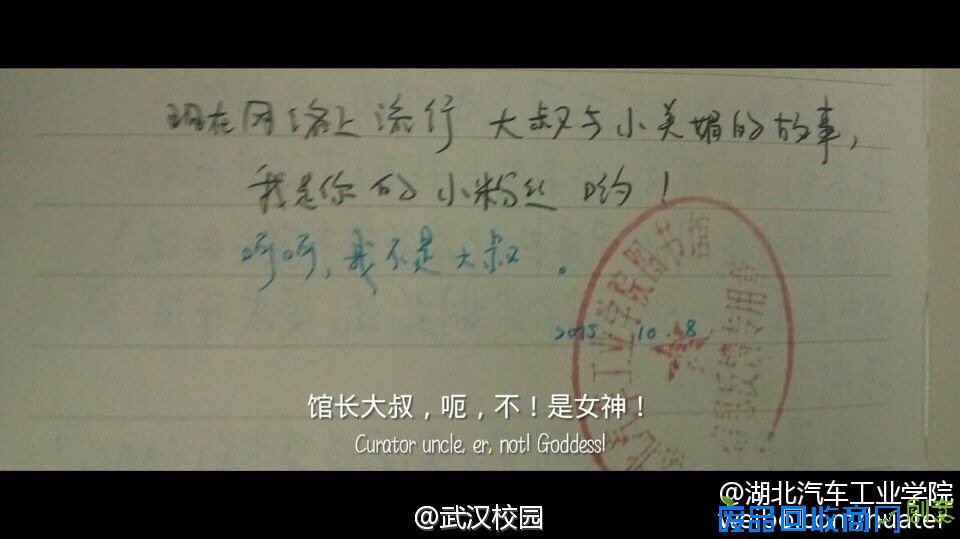 现在网络上流行大叔与小美媚的故事，
我是你的小粉丝哟！
呵呵，我不是大叔。
2015.10.8
工业学院图书馆
馆长大叔，呃，不！是女神！
Curator uncle, er, not! Goddess!
@湖北汽车工业学院
@武汉校园
废品回收商网